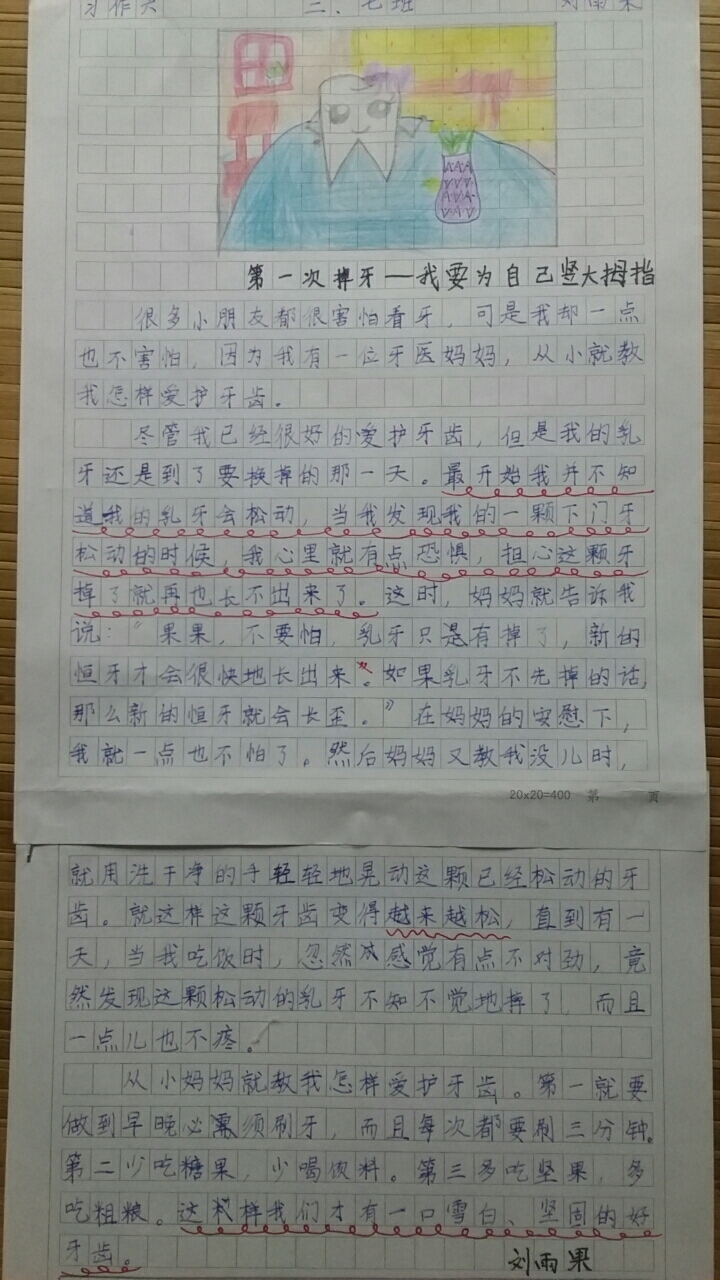 习作大 二、七班 刘雨果
第一次掉牙——我要为自己竖大拇指
很多小朋友都很害怕看牙，可是我却一点
也不害怕，因为我有一位牙医妈妈，从小就教
我怎样爱护牙齿。
尽管我已经很好的爱护牙齿，但是我的乳
牙还是到了要换掉的那一天。最开始我并不知
道我的乳牙会松动，当我发现我的一颗下门牙
松动的时候，我心里就有点恐惧，担心这颗牙
掉了就再也长不出来了。这时，妈妈就告诉我
说：“果果，不要怕，乳牙只是有掉了，新的
恒牙才会很快地长出来。如果乳牙不先掉的话，
那么新的恒牙就会长歪。”在妈妈的安慰下，
我就一点也不怕了。然后妈妈又教我没儿时，
20x20=400 第 页
就用洗干净的手轻轻地晃动这颗已经松动的牙
齿。就这样这颗牙齿变得越来越松，直到有一
天，当我吃饭时，忽然感觉有点不对劲，竟
然发现这颗松动的乳牙不知不觉地掉了，而且
一点儿也不疼。
从小妈妈就教我怎样爱护牙齿。第一就要
做到早晚必需须刷牙，而且每次都要刷三分钟。
第二少吃糖果，少喝饮料。第三多吃坚果，多
吃粗粮。这样我们才有一口雪白、坚固的好
牙齿。
刘雨果